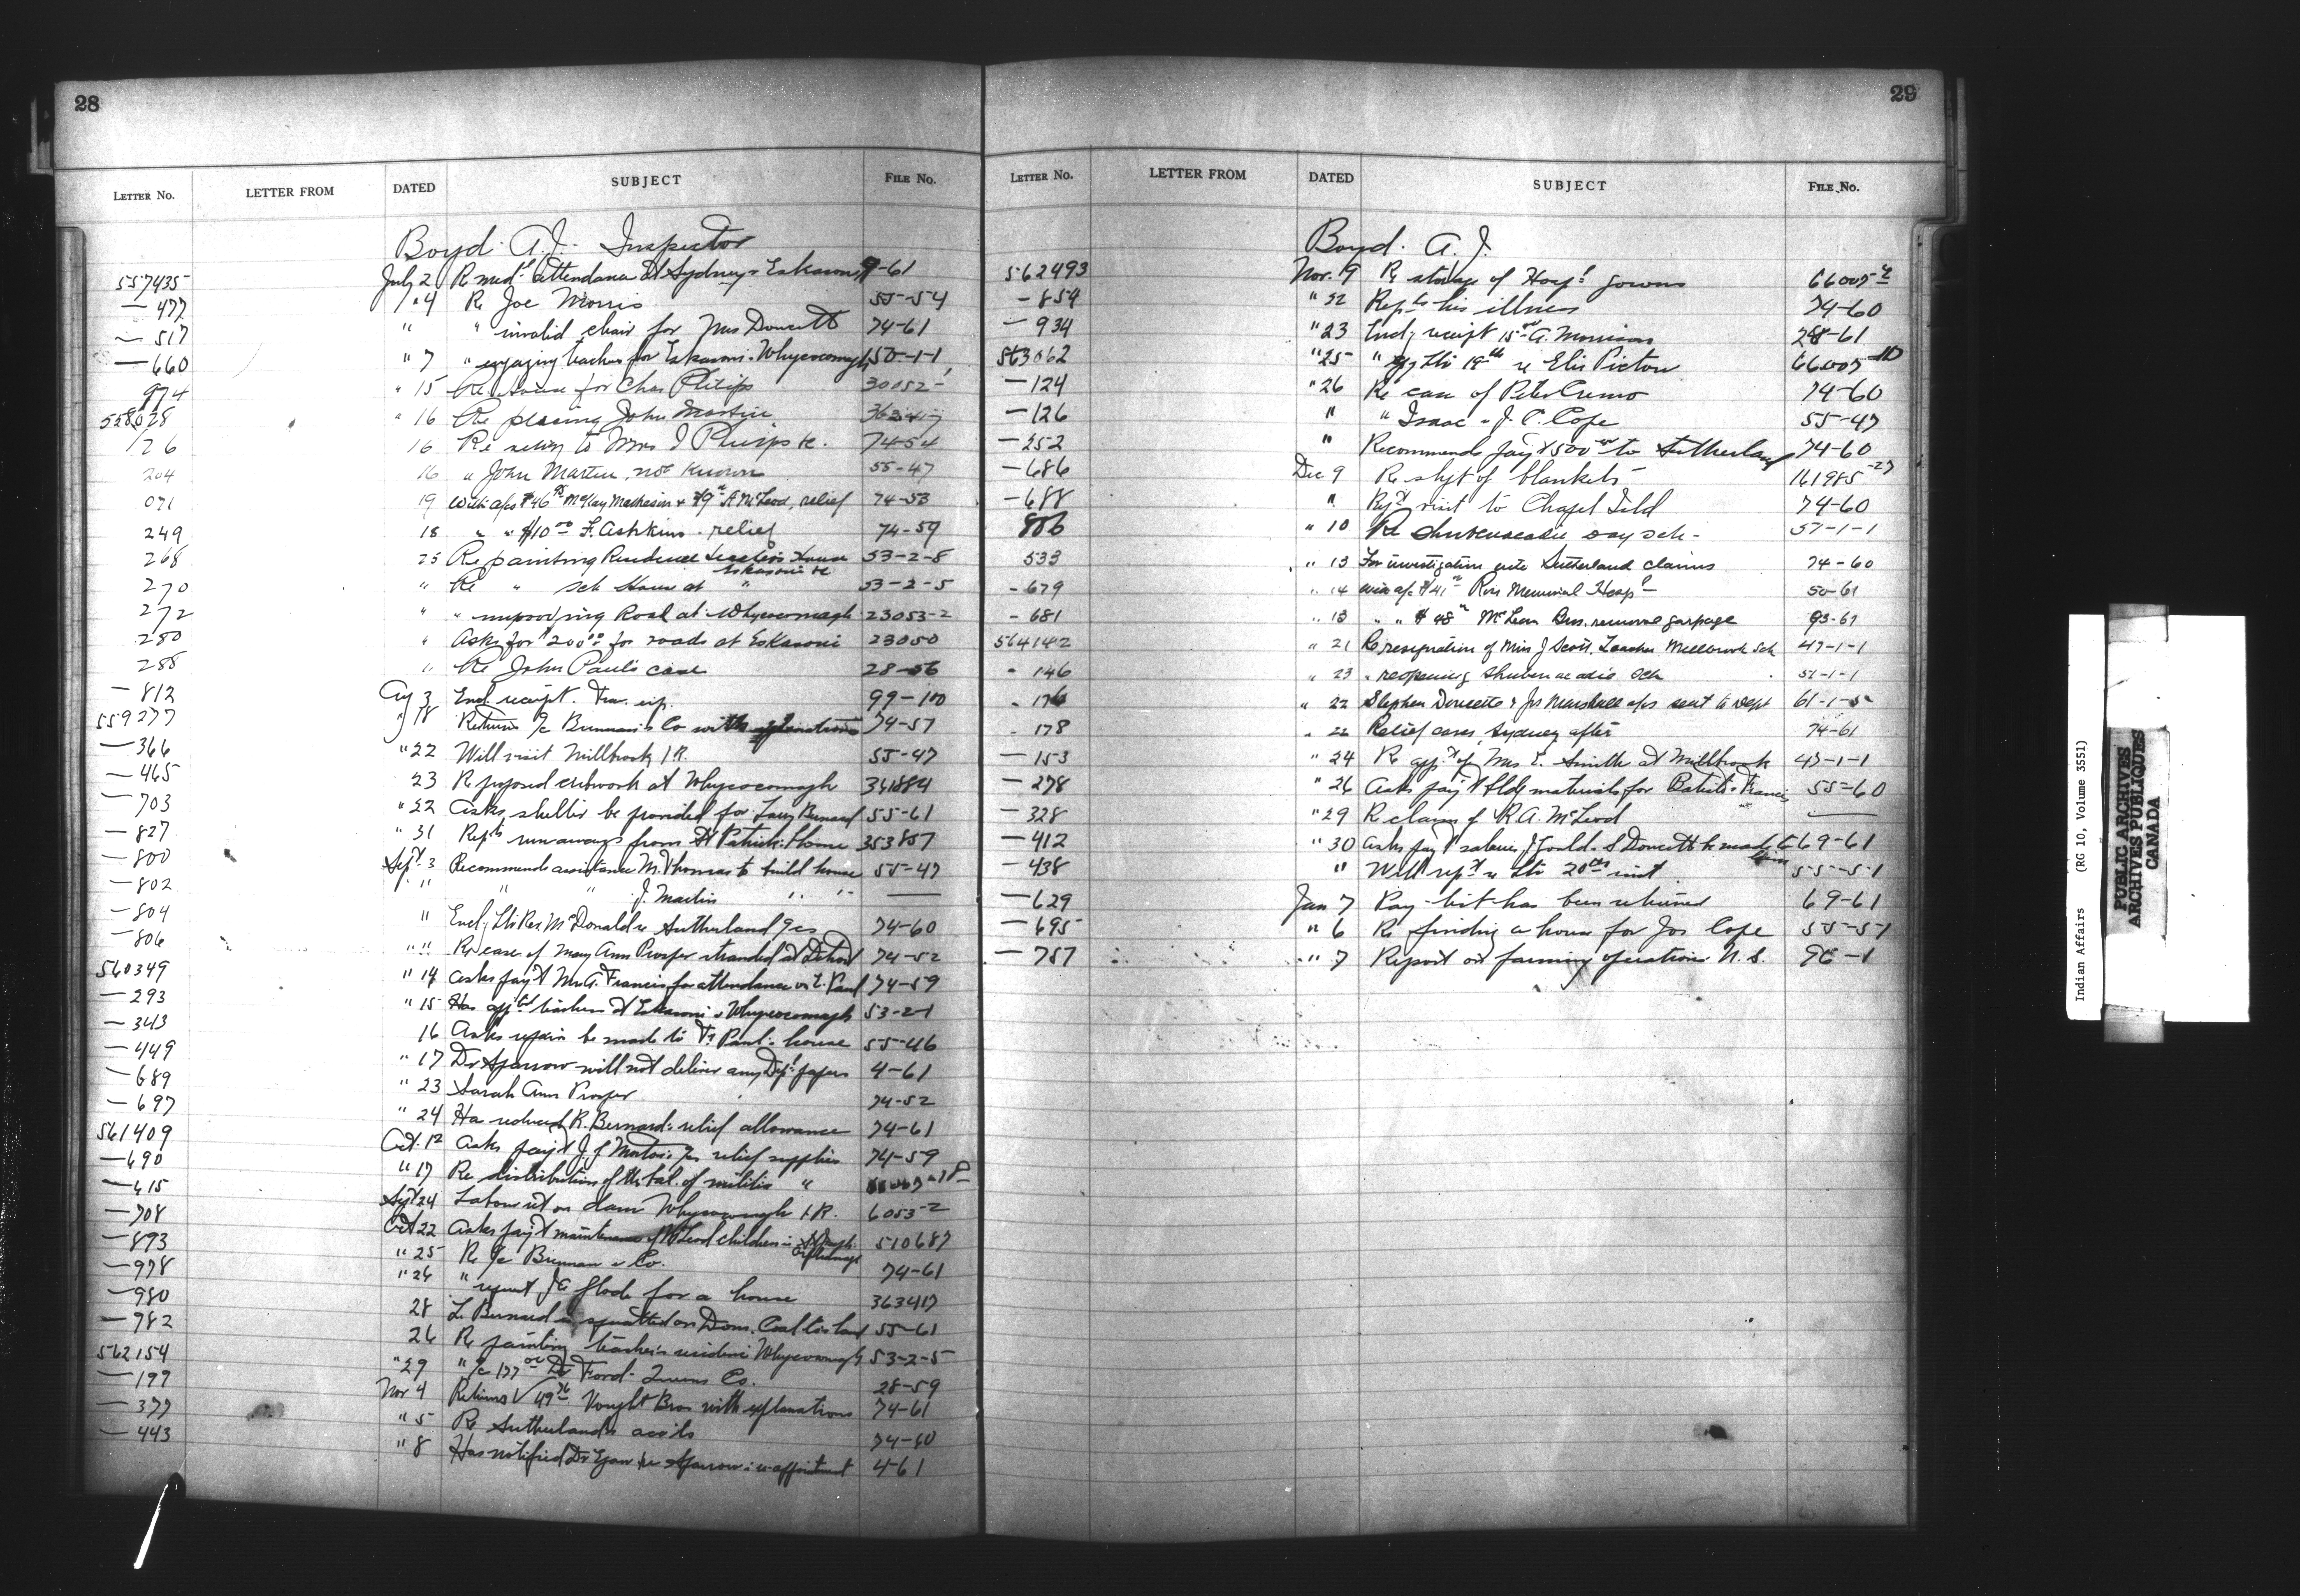 28
LETTER NO. LETTER FROM DATED SUBJECT FILE NO.
Boyd. A.J. Inspector
557435 July 2 Re med'l attendance at Sydney & Eskasoni 9-61
— 477 " 4 Re Joe Morris 55-54
— 517 " " invalid chair for Mrs Doucett 74-61
— 660 " 7 " engaging teachers for Eskasoni & Whycocomagh 50-1-1
974 " 15 Re house for Chas Philips 30052-
558028 " 16 Re placing John Martin 363417
126 16 Re relief to Mrs J Philips 74-54
204 16 " John Martin, not known 55-47
071 19 With a/cs $46 McKay Matheson & $9 A McLeod, relief 74-53
249 18 " " $10.00 F. Ashkins. relief 74-59
268 25 Re painting Residence Teacher's House Eskasoni 53-2-8
270 " Re " Sch House at " 53-2-5
272 " " improving Road at Whycocomagh 23053-2
280 " Asks for $200.00 for roads at Eskasoni 23050
288 " Re John Paul's case 28-56
— 812 Aug 3 Encl receipt. Trav. exp. 99-100
559277 " 18 Returns a/c Brennan's Co with explanations 74-57
— 366 " 22 Will visit Millbrook I.R. 55-47
— 465 23 Re proposed cribwork at Whycocomagh 341884
— 703 " 22 Asks shelter be provided for Bernard 55-61
— 827 " 31 Repts runaways from St Patrick's Home 353857
— 800 Sept. 3 Recommends assistance M. Thomas to build house 55-47
— 802 " " " J. Martin " " —
— 804 " Encl. ltr Rev. McDonald re Sutherland a/cs 74-60
— 806 " " Re case of Mary Ann Prosper stranded at Detroit 74-52
560349 " 14 Asks pay't Mrs A. Francis for attendance on L. Paul 74-59
— 293 " 15 Has appt'd teachers at Eskasoni & Whycocomagh 53-2-1
— 343 16 Asks repairs be made to Fr Paul's house 55-46
— 449 " 17 Dr Sparrow will not deliver any Dept papers 4-61
— 689 " 23 Sarah Ann Prosper 74-52
— 697 " 24 Has reduced R. Bernard's relief allowance 74-61
561409 Oct. 12 Asks pay't J. J. Morton's a/c relief supplies 74-59
— 690 " 17 Re distribution of the bal. of militia "
— 615 Sept 24 Labour on dam Whycocomagh I.R. 6053-2
— 708 Oct 22 Asks pay't maintenance of McLeod children in St Joseph's Orphanage 510687
— 893 " 25 Re a/c Brennan & Co. 74-61
— 978 " 26 " request J E Glode for a house 363417
— 980 28 L. Bernard is squatted on Dom. Coal Co's land 55-61
— 982 26 Re painting teacher's residence Whycocomagh 53-2-5
562154 " 29 " a/c 177.00 Dr Ford - Queens Co. 28-59
— 199 Nov 4 Returns 49 Vought Bros with explanations 74-61
— 377 " 5 Re Sutherland's accts 74-60
— 443 " 8 Has notified Dr re Sparrow's re-appointment 4-61
29
LETTER NO. LETTER FROM DATED SUBJECT FILE NO.
Boyd. A.J.
562493 Nov. 9 Re storage of Hosp'l gowns 66007
— 854 " 22 Repts his illness 74-60
— 934 " 23 Encl. receipt 15.00 A. Morrison 28-61
563062 " 25 " ltr 19th re Elis Pictou 66007
— 124 " 26 Re case of Peter Cremo 74-60
— 126 " " Isaac & J. P. Cope 55-47
— 252 " Recommends pay't 500.00 to Sutherland 74-60
— 686 Dec 9 Re shpt of blankets 161985-27
— 688 " Rept visit to Chapel Isld 74-60
806 " 10 Re Shubenacadie Day sch. 57-1-1
533 " 13 For investigation into Sutherland claims 74-60
- 679 " 14 With a/c $41 Ross Memorial Hosp'l 50-61
- 681 " 13 " " $48 McLean Bros. removal garbage 93-61
564142 " 21 Re resignation of Miss J Scott, Teacher Millbrook Sch 47-1-1
- 146 " 23 " reopening Shubenacadie Sch 57-1-1
- 176 " 22 Stephen Doucette & Jos Marshall a/cs sent to Dept 61-1-5
- 178 " 22 Relief cases, Sydney after 74-61
— 153 " 24 Re app't of Mrs E. Smith at Millbrook 47-1-1
— 278 " 26 Asks pay't bldg materials for Batiste Francis 55-60
— 328 " 29 Re claim of R. A. McLeod —
— 412 " 30 Asks pay't salaries J Gould & S Doucett be made to him 69-61
— 438 " Will rep't re ltr 20th inst 55-51
— 629 Jan 7 Pay-list has been returned 69-61
— 695 " 6 Re finding a house for Jos Cope 55-57
— 757 " 7 Report on farming operations N.S. 96-1
Indian Affairs (RG 10, Volume 3551)
PUBLIC ARCHIVES
ARCHIVES PUBLIQUES
CANADA